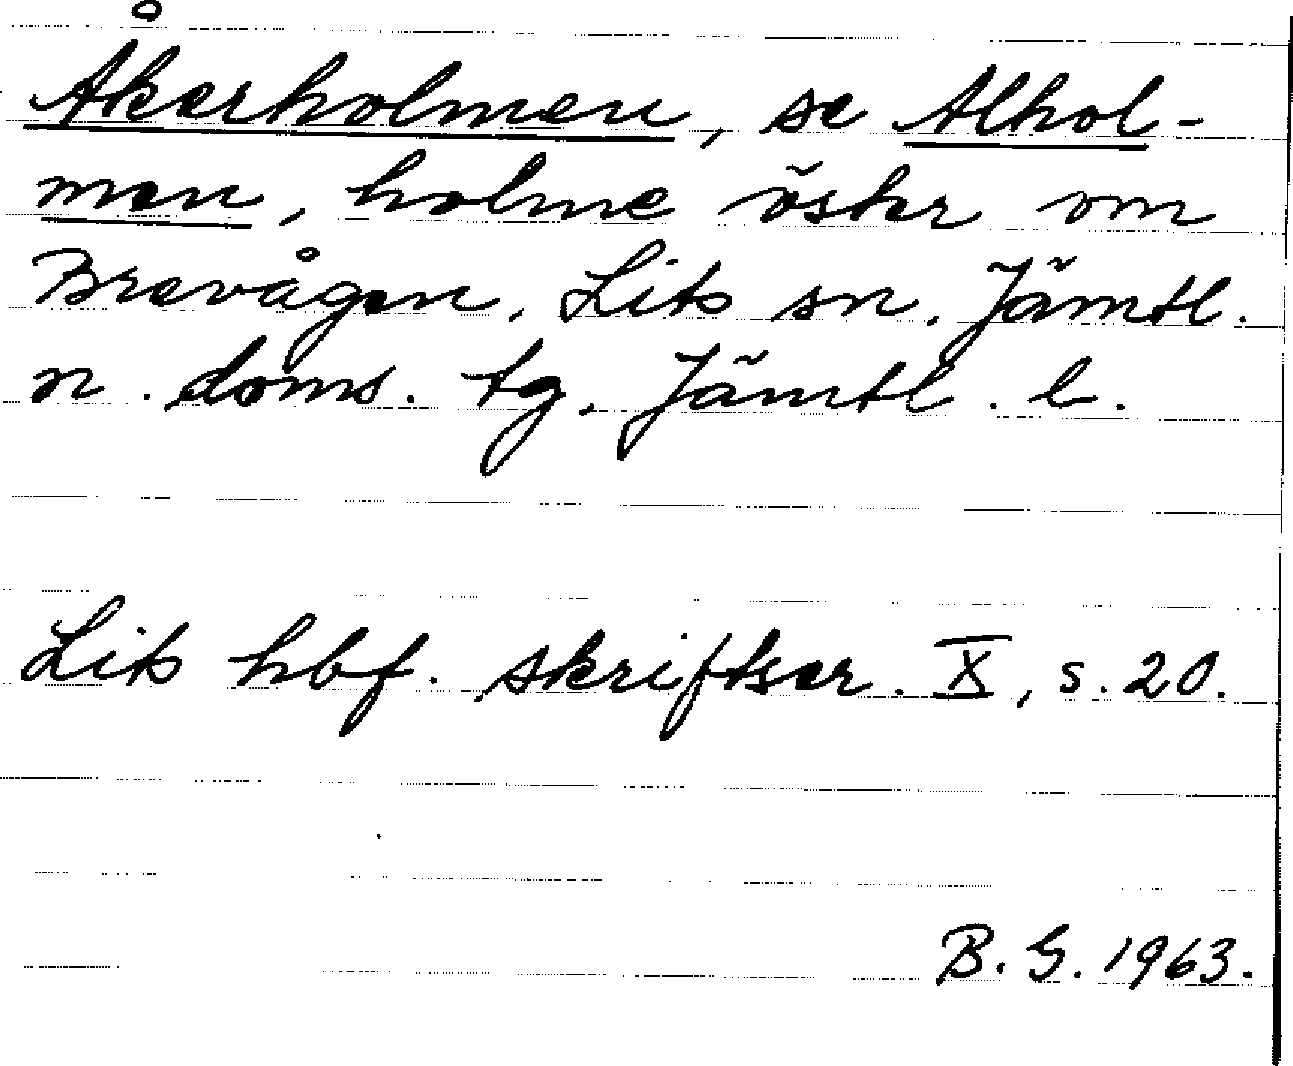 Åkerholmen, se Alhol-
men, holme öster om
Brevågen, Lits sn. Jämtl.
n. doms. tg, Jämtl. l.
Lits hbf. skriftser. X, s. 20.
B. G. 1963.